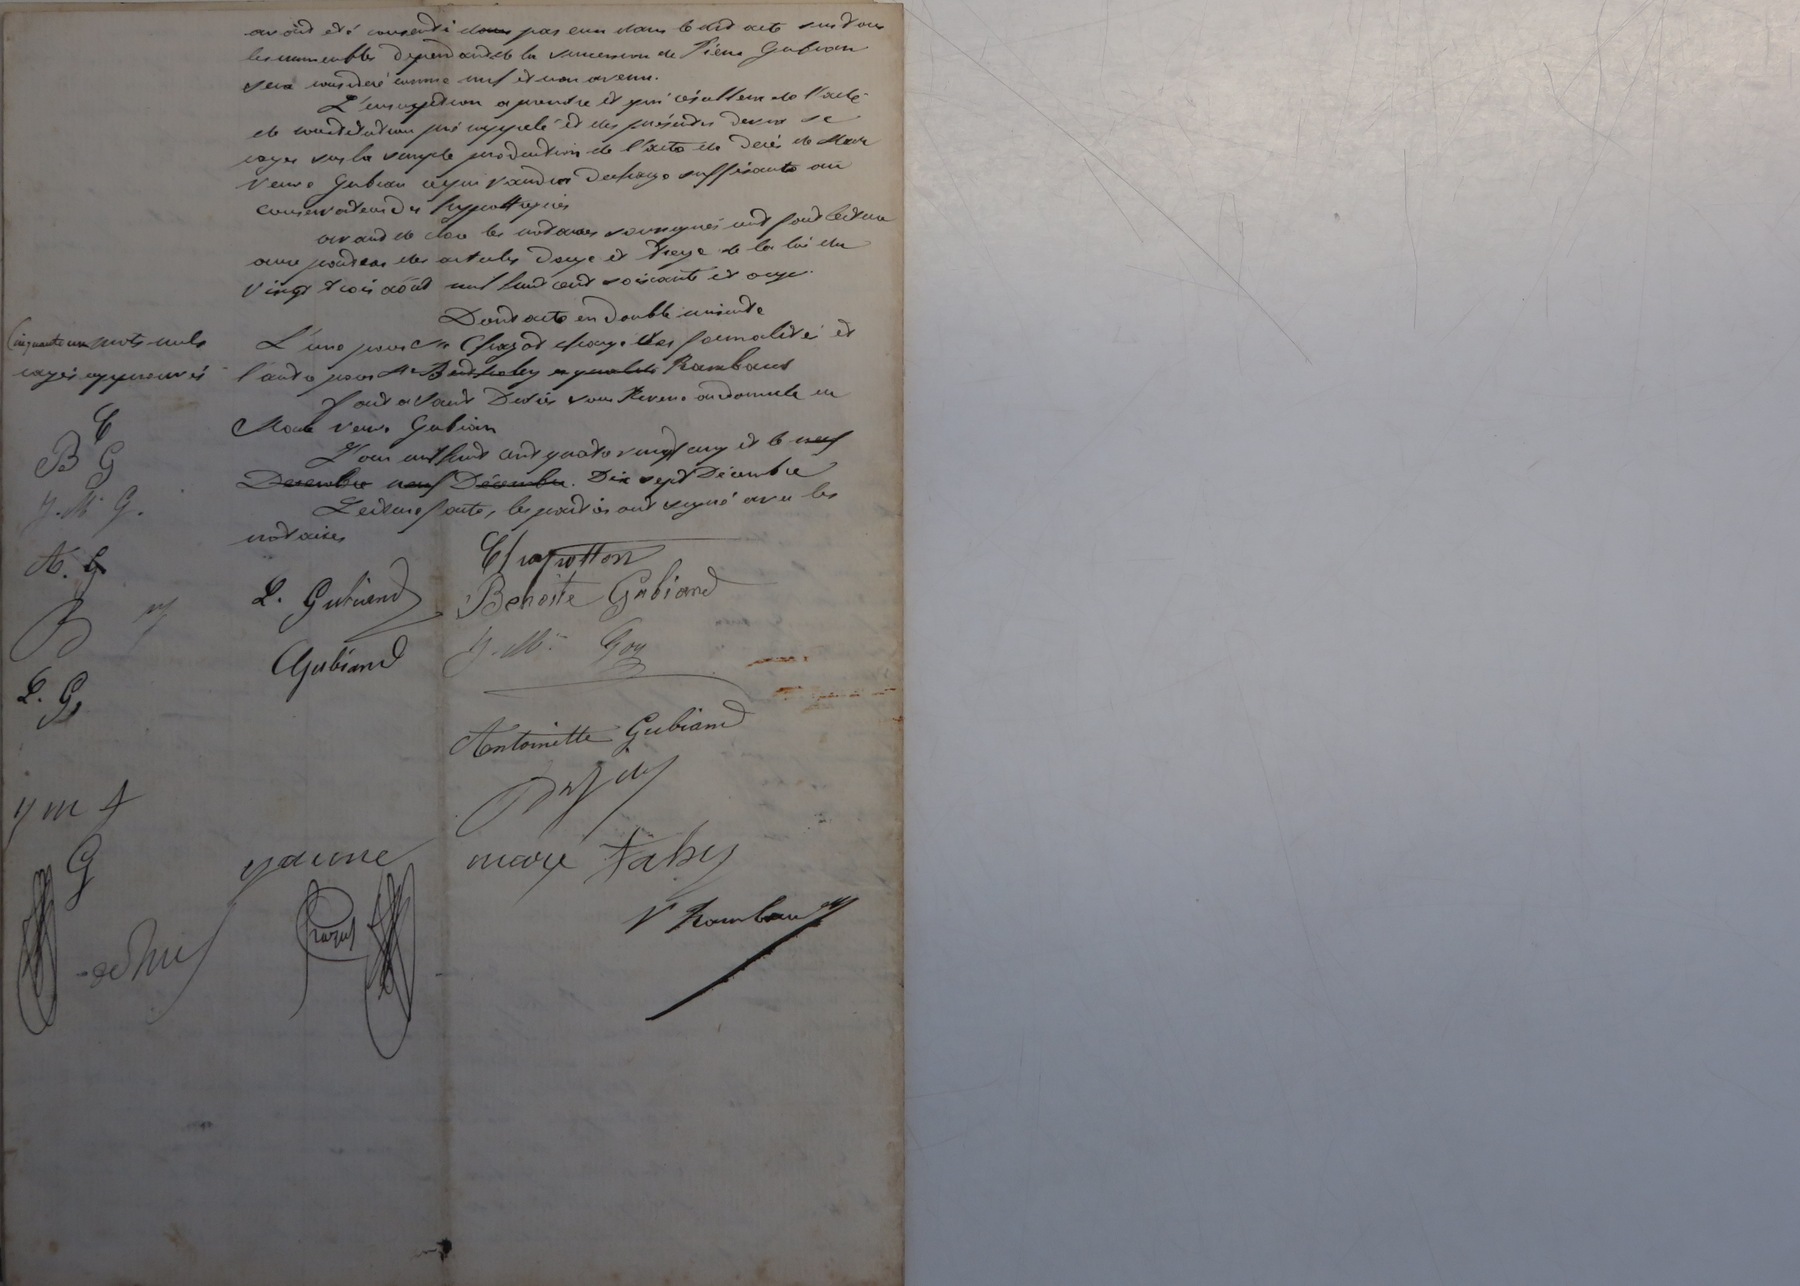 avait été consenti dans par eux dans le dit acte sur tous
les immeubles dependant de la succession de Pierre Gubian
sera considéré comme nul et non avenu.
L'inscription a prendre et qui résultera de l'acte
de constitution pré rappelé et des présentes devra se
rayer sur la simple production de l'acte de décès de Mme
Veuve Gubian ce qui vaudra décharge suffisante au
conservateur des hypothèques
avant de clore les notaires soussignés ont fait lecture
aux parties des articles douze et treize de la loi du
vingt trois août mil huit cent soixante et onze.
Dont acte en double minute
L'une pour Me Chazot chargé des formalités et
l'autre pour Me Rambaud
Fait et passé vous Rivene au domicile de
Mme veuve Gubian
L'an mil huit cent quatre vingt cinq et le neuf
Decembre neuf Décembre. Dix sept Décembre
Lecture faite, les parties ont signé avec les
notaires
Cinquante un mots nuls
rayés approuvés
C
B G
J. M. G.
A. G
B
L. G.
L. Gubiand
Benoite Gubiand
Gubiand
J. M. Goy
Antoinette Gubiand
y m f
G
yaume
marie faby
Vr Rambaud